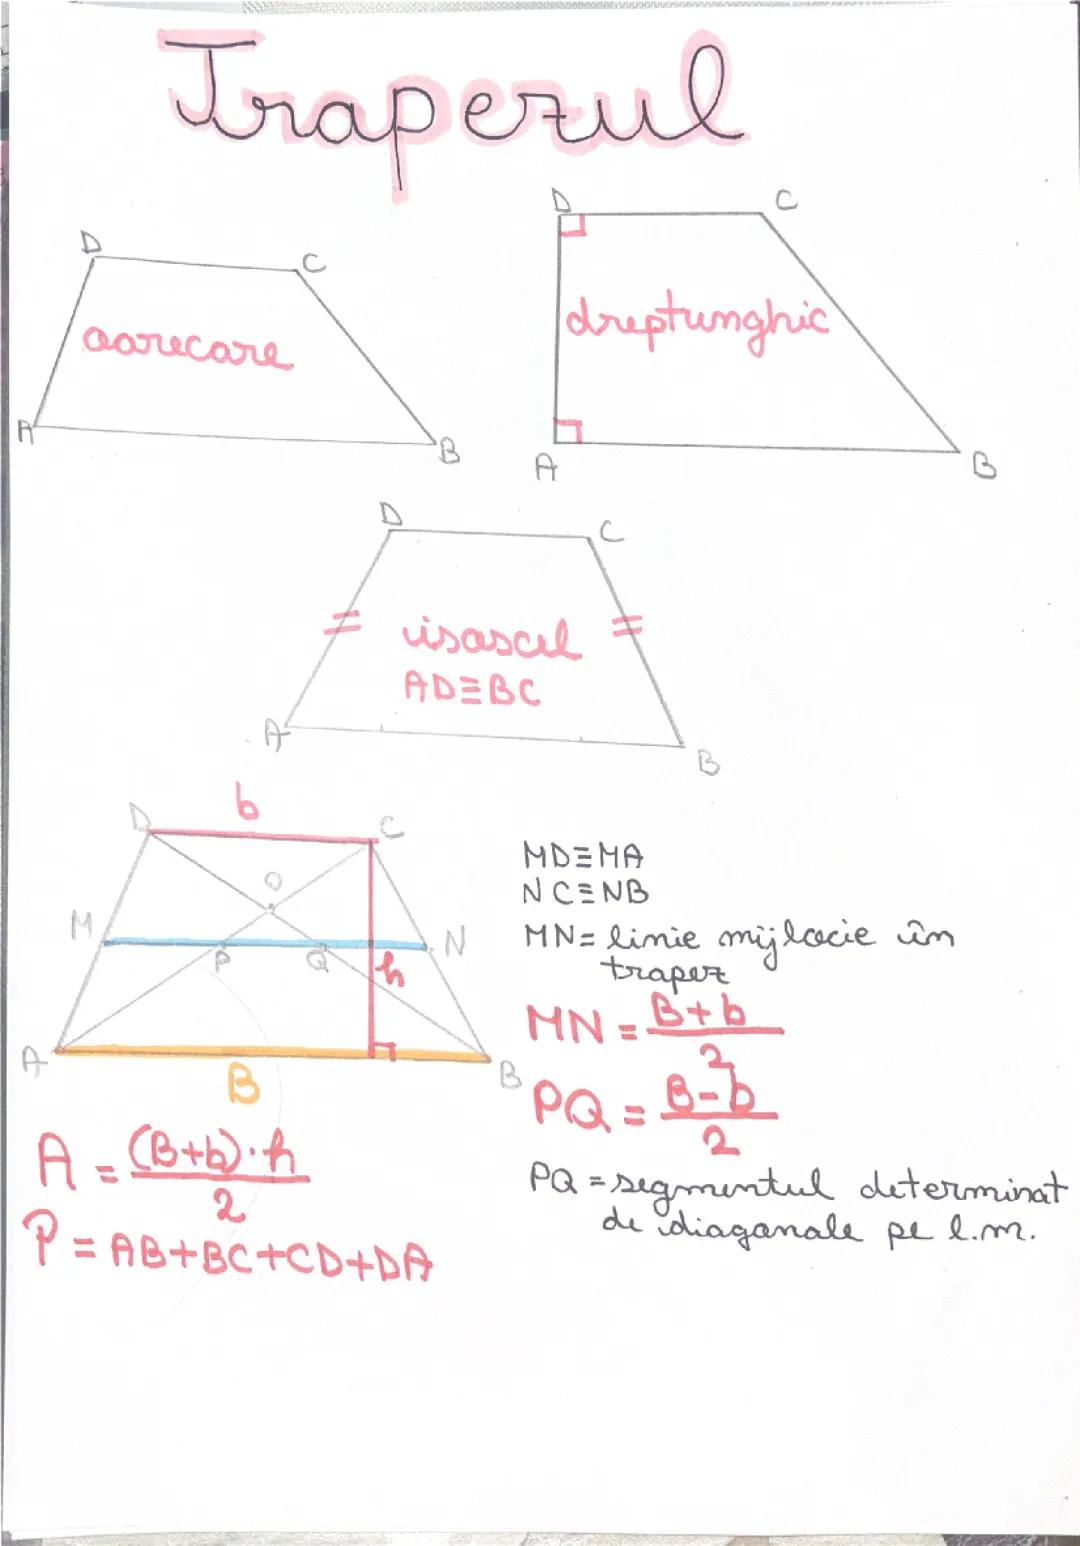 Trapezul
D
C
oarecare
A
B
D
C
dreptunghic
A
B
D
C
isoscel
AD≡BC
A
B
b
D
C
O
M
N
P
Q
h
A
B
B
MD≡MA
NC≡NB
MN= linie mijlocie în
trapez
MN = (B+b)/2
PQ = (B-b)/2
PQ = segmentul determinat
de diagonale pe l.m.
A = ((B+b)·h)/2
P = AB+BC+CD+DA